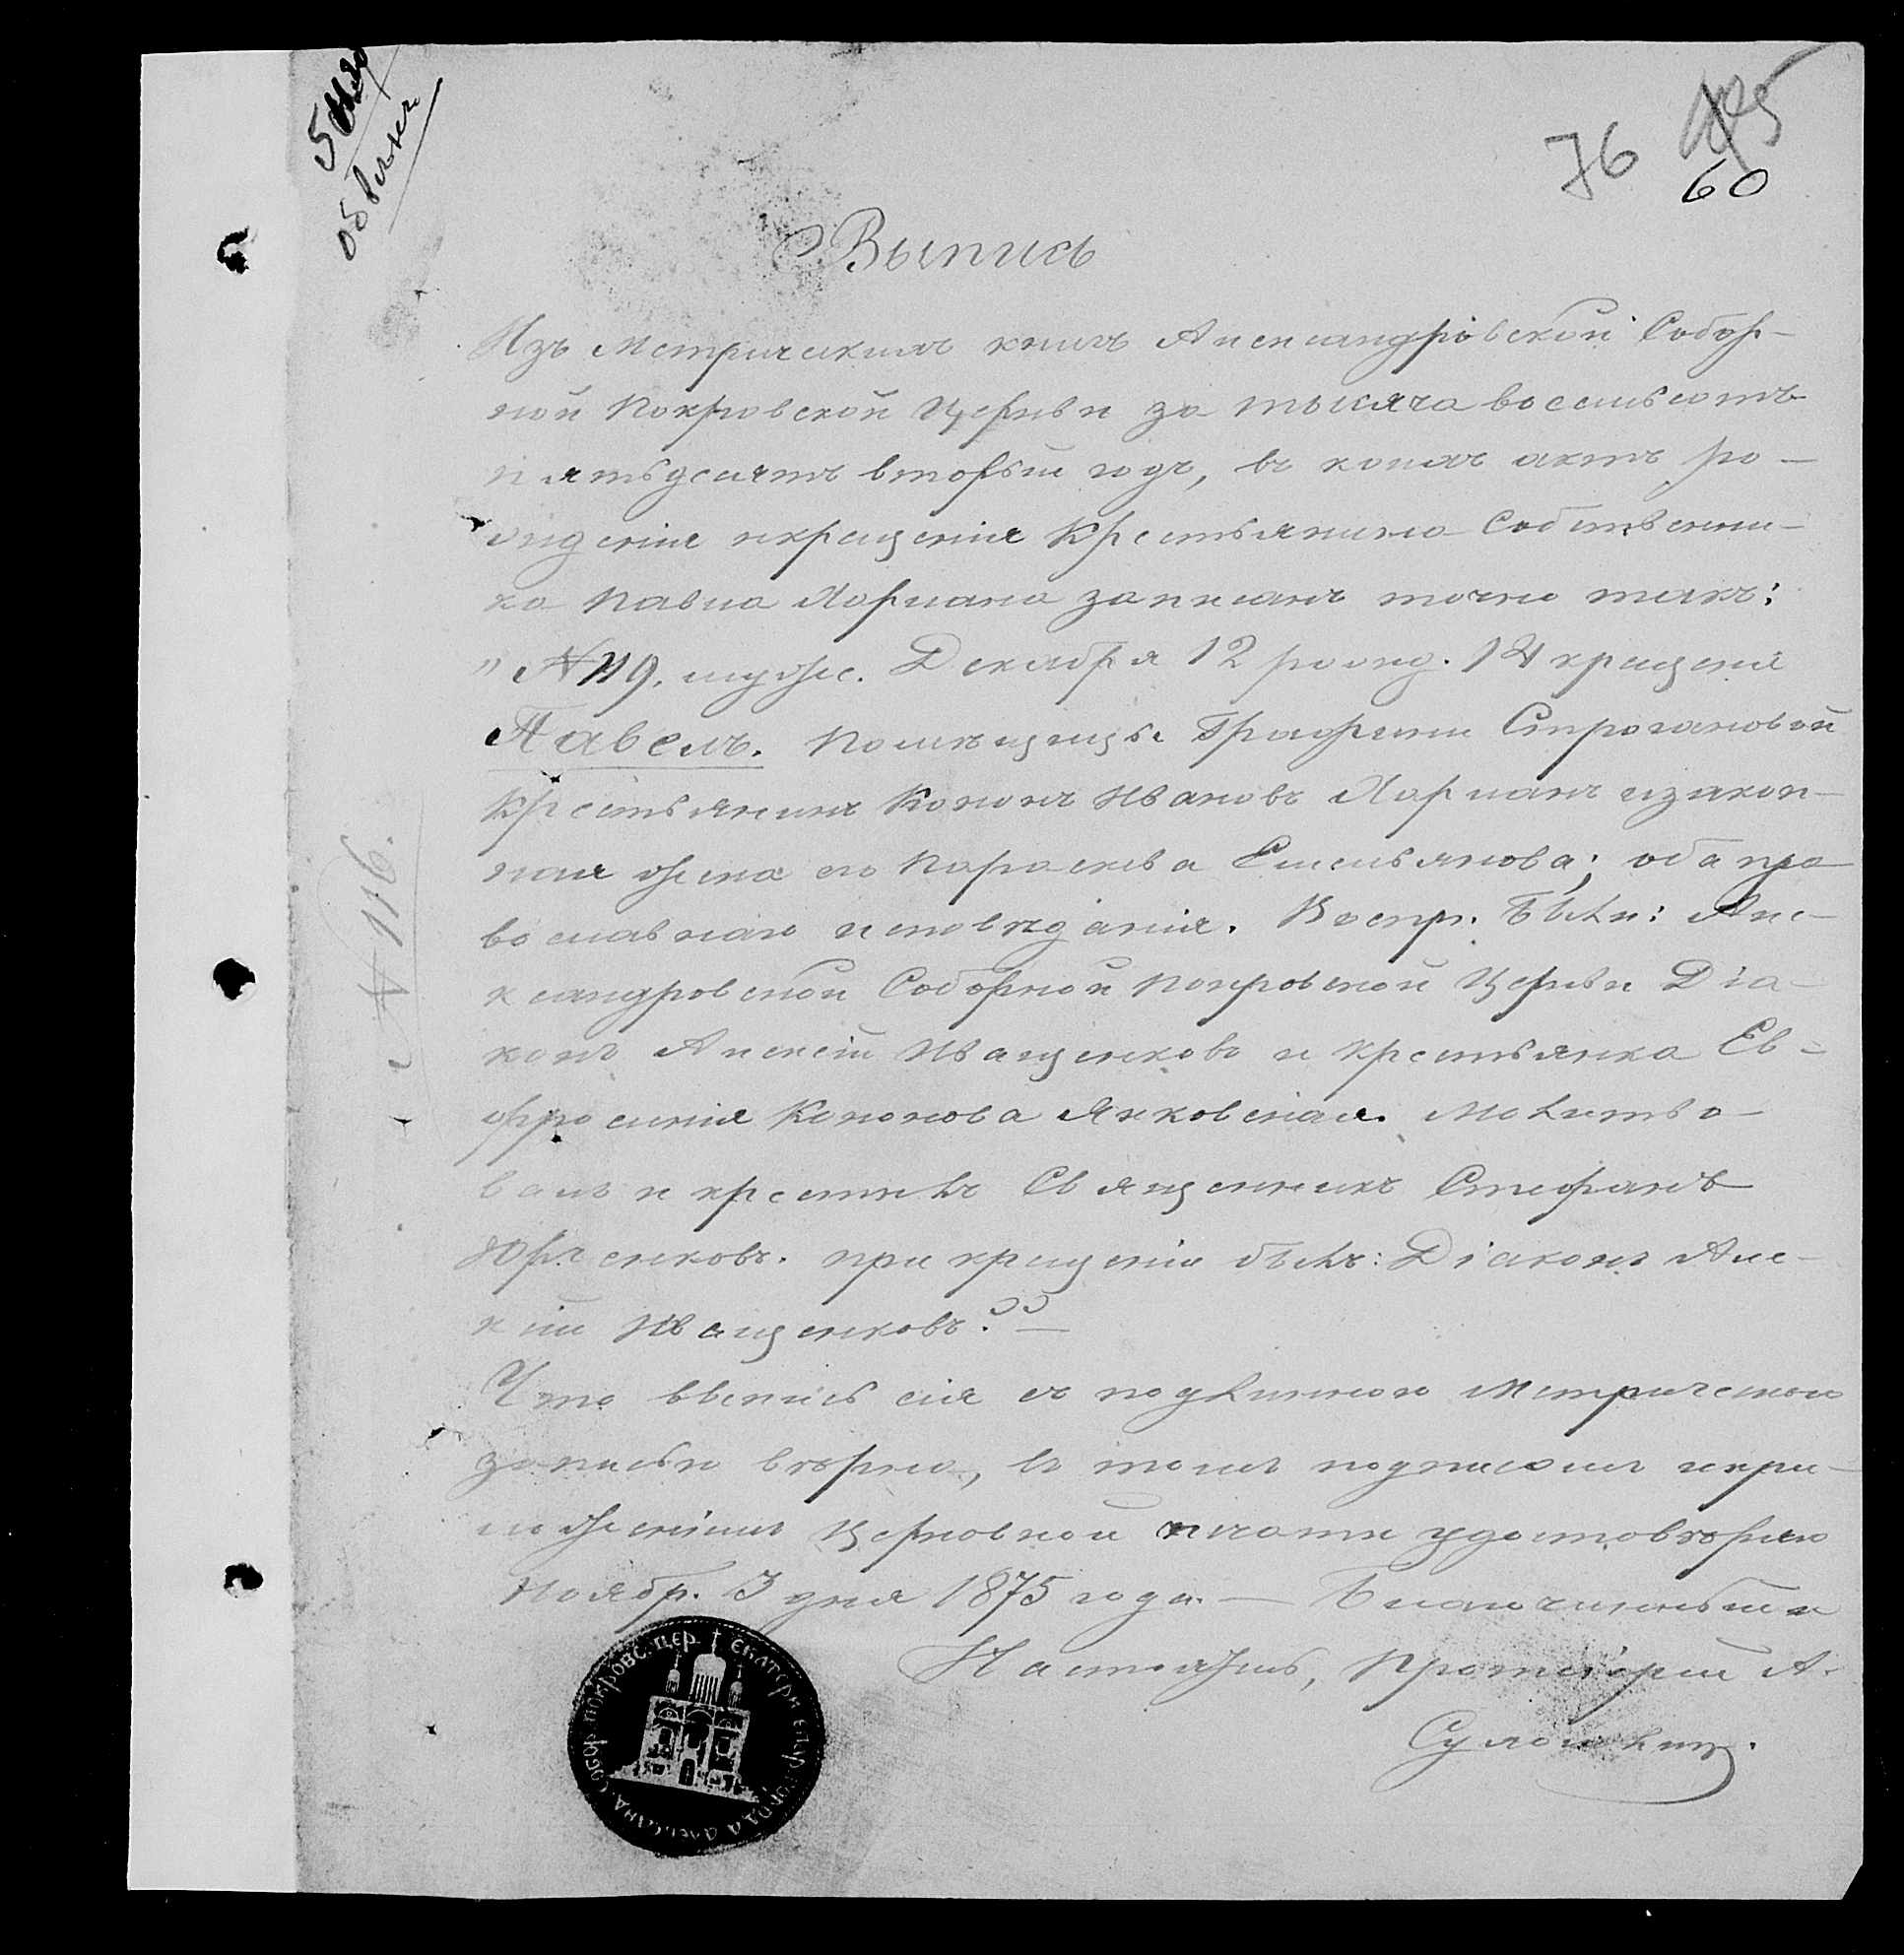 76
60
Выпись
Изъ Метрическихъ книгъ Александровской Собор-
ной Покровской Церкви за тысяча восемьсотъ
пятьдесятъ вторый годъ, въ коихъ актъ ро-
жденія и крещенія Крестьянина Собственни-
ка Павла Хормана записанъ точно такъ:
" № 119. муж. Декабря 12 рожд. 14 крещенъ
Павелъ. Помѣщицы Графини Строгановой
Крестьянинъ Кононъ Ивановъ Хорманъ и закон-
ная жена его Параскева Емельянова; оба пра-
вославнаго исповѣданія. Воспр. Были: Але-
ксандровской Соборной Покровской Церкви Діа-
конъ Алексѣй Иващенковъ и крестьянка Ев-
фросинія Кононова Янковская. Молитво-
валъ и крестилъ Священникъ Стефанъ
Юрченковъ. при крещеніи былъ: Діаконъ Але-
ксій Иващенковъ."—
Что выпись сія съ подлинною Метрическою
записью вѣрна, въ томъ подписомъ и при-
ложеніемъ Церковной печати удостовѣряю
Ноябр. 3 дня 1875 года. — Благочинный и
Настоятель, Протоіерей А.
№ 116.
СОБОР. ПОКРОВС. ЦЕР. ЕКАТЕРИ. ЕПАР. ГОРОДА АЛЕКСАНД.